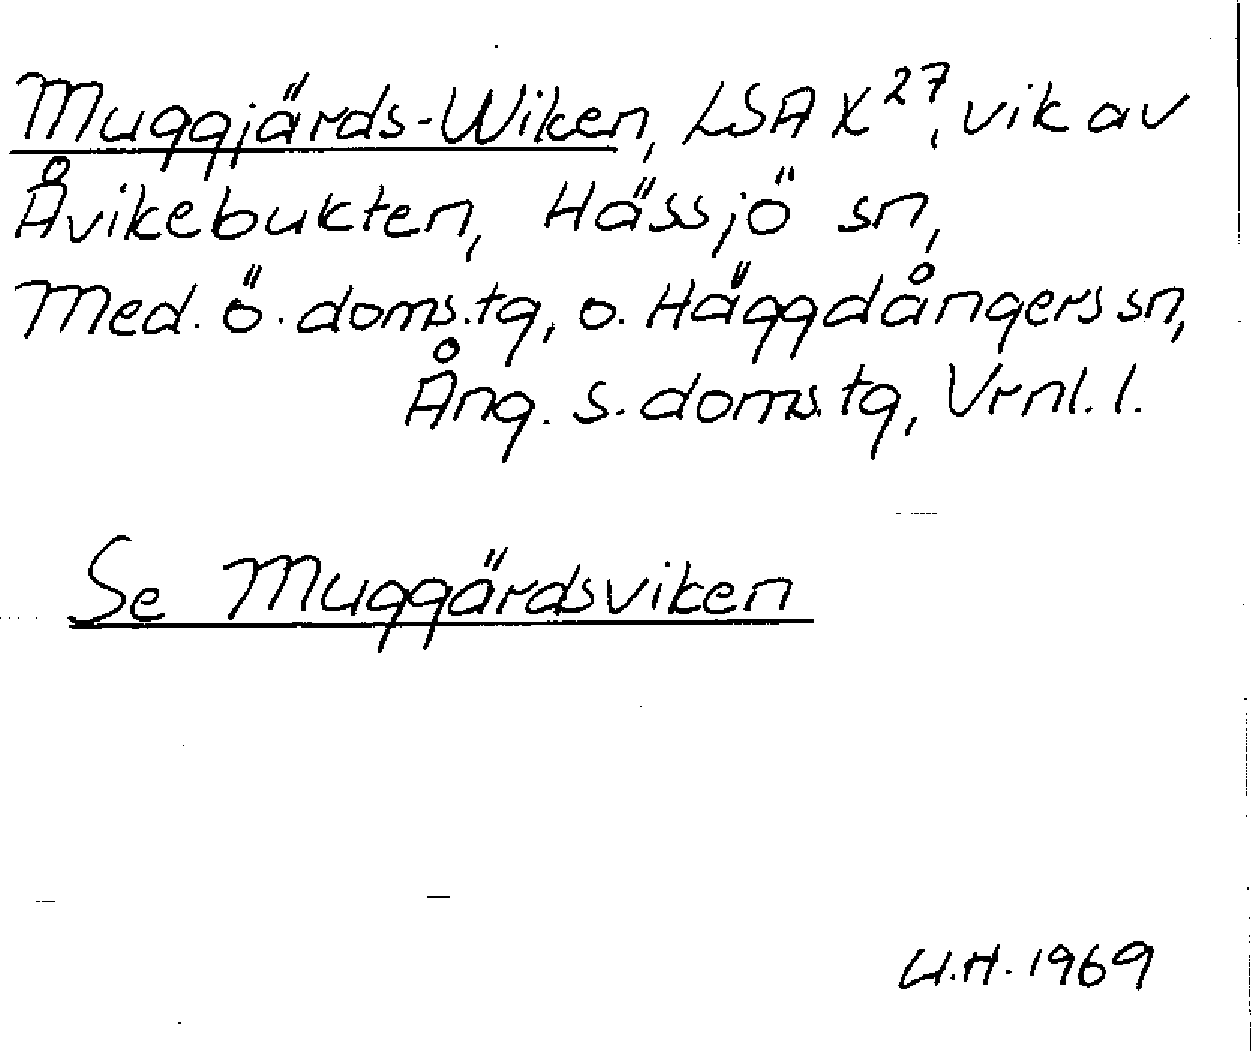 Muggjärds-Wiken, LSA X²⁷, vik av
Åvikebukten, Hässjö sn,
Med. ö. doms.tg, o. Häggdångers sn,
Ång. s. doms.tg, Vrnl. l.
Se Muggärdsviken
U.H. 1969